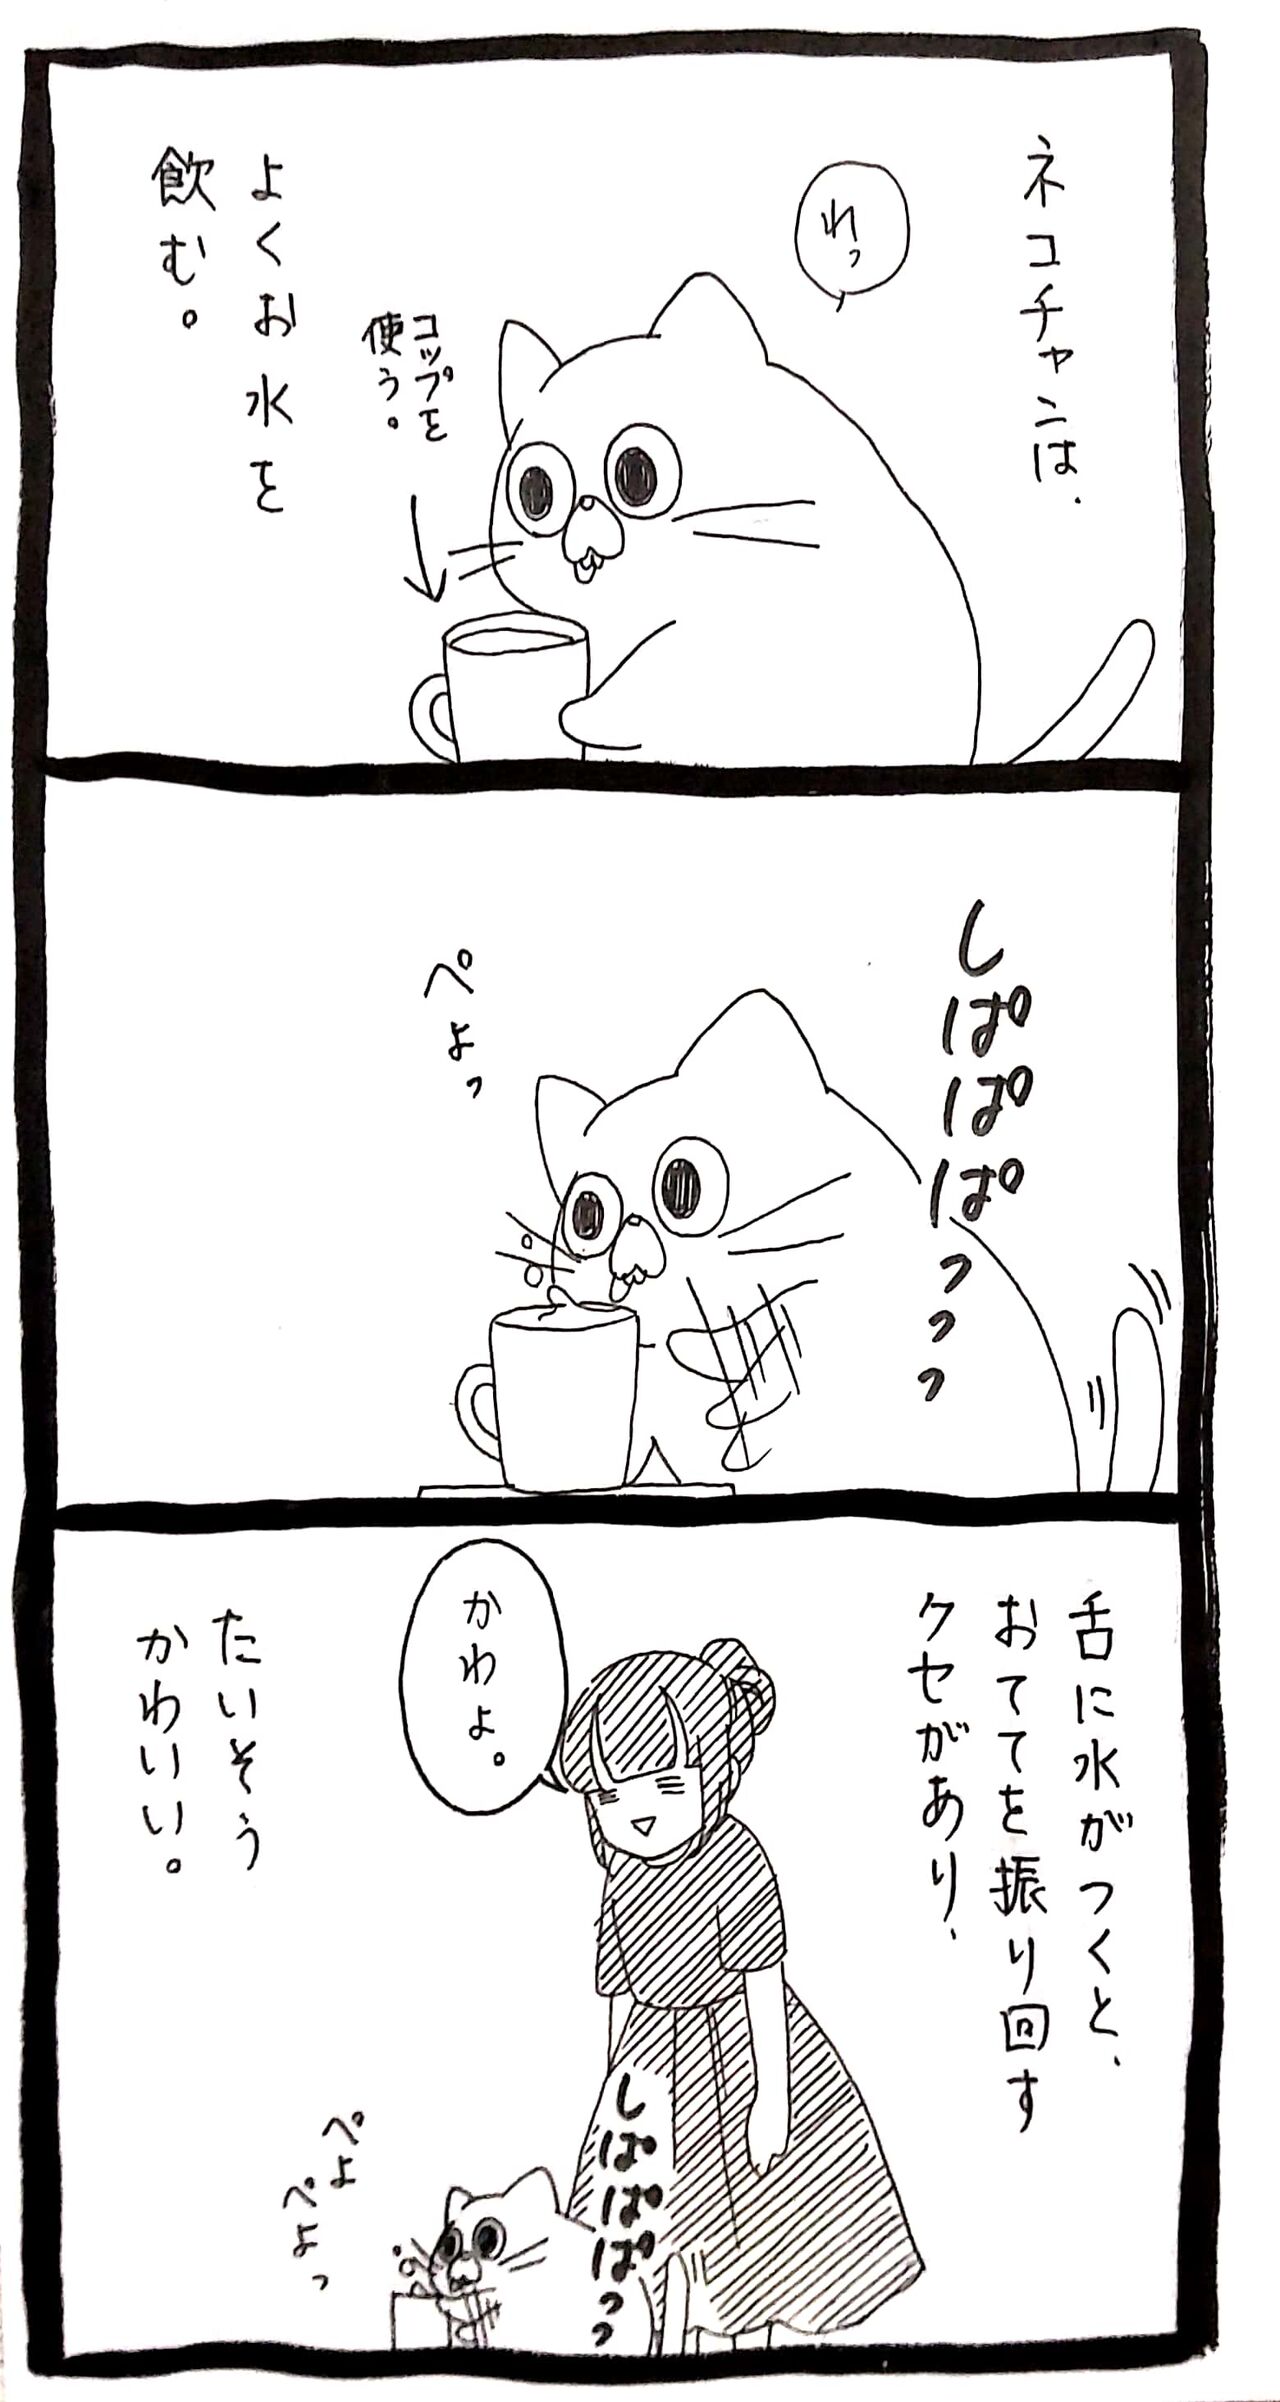 ネコチャンは、
れっ
コップを
使う。
よくお水を
飲む。
しぱぱぱっっっ
ぺょっ
舌に水がつくと、
おててを振り回す
クセがあり、
かわょ。
たいそう
かわいい。
しぱぱぱっっ
ぺょ
ぺょっ